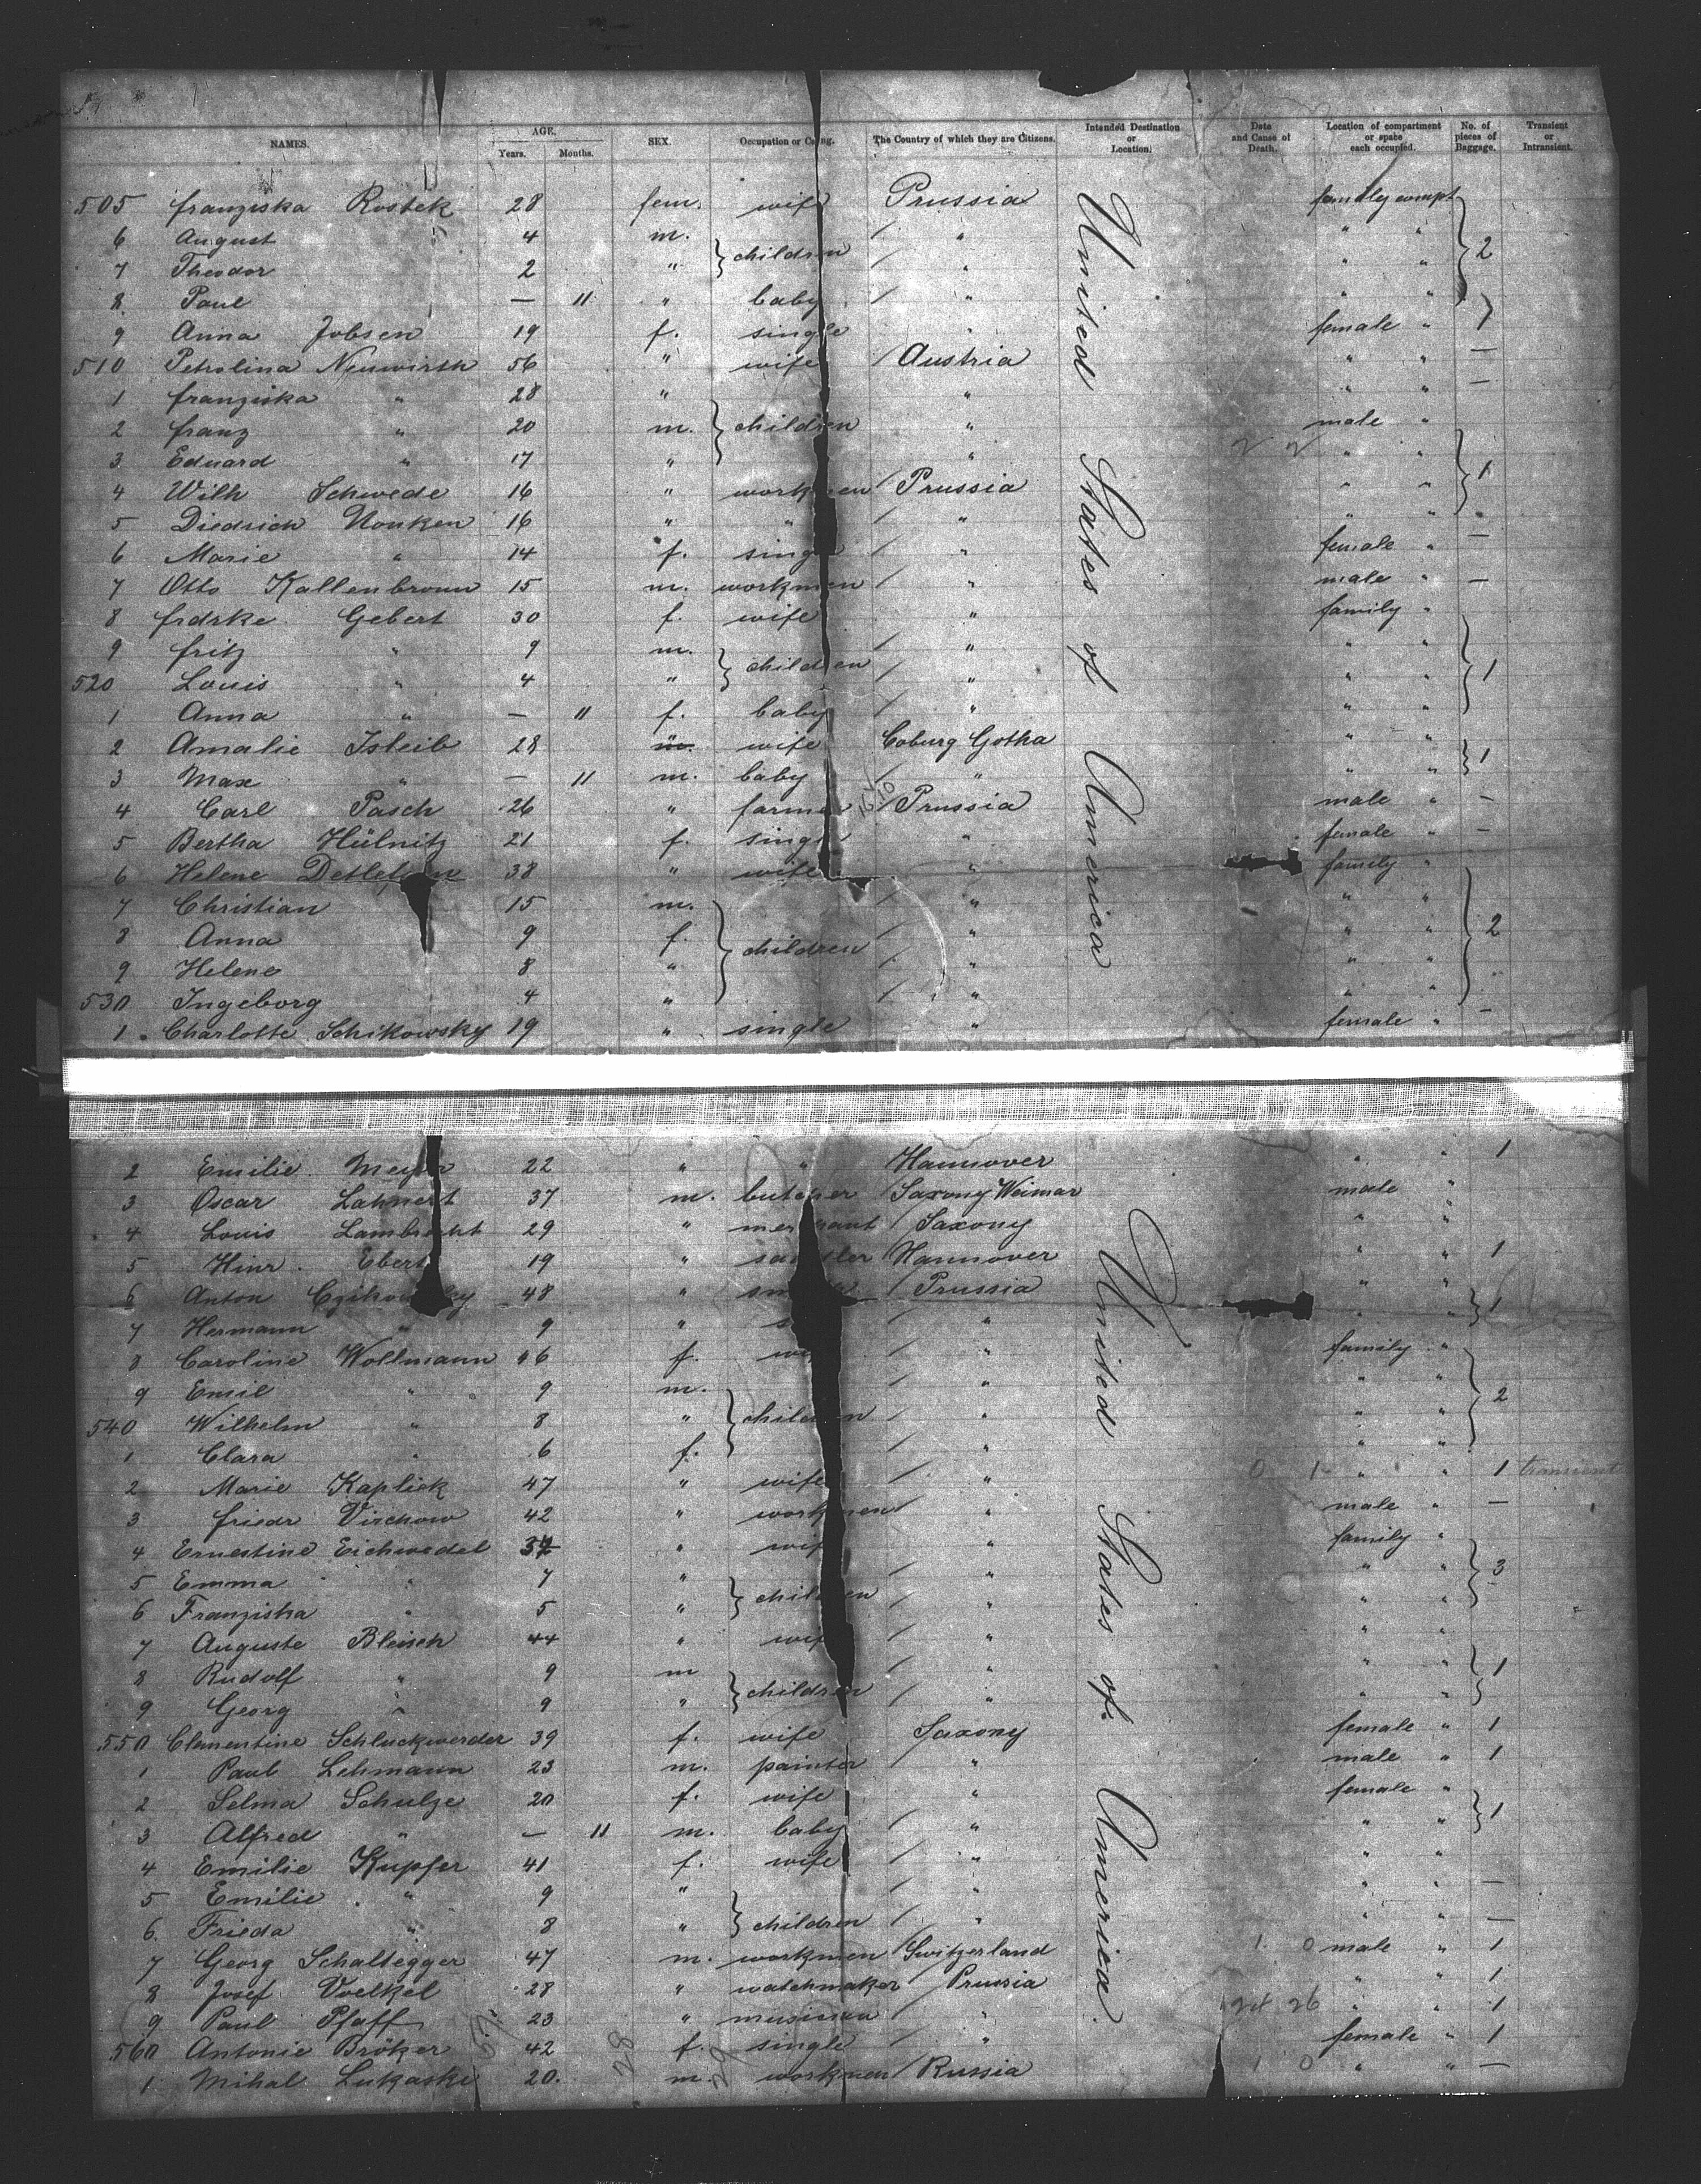 NAMES. AGE. Years. Months. SEX. Occupation or Calling. The Country of which they are Citizens. Intended Destination or Location. Date and Cause of Death. Location of compartment or space each occupied. No. of pieces of Baggage. Transient or Intransient.
505 franziska Rostek 28 fem. wife Prussia family compt
6 August 4 m. children " " " 2
7 Theodor 2 " " " "
8 Paul — 11 " baby " " "
9 Anna Jobsen 19 f. single " female " 1
510 Petrolina Neuwirth 56 " wife Austria " " —
1 franziska " 28 " " " " —
2 franz " 20 m. children " male "
3 Eduard " 17 " " " "
4 Wilh Schwede 16 " workmen Prussia " " 1
5 Diedrich Nonken 16 " " " " "
6 Marie " 14 f. single " female " —
7 Otto Kallenbronn 15 m. workmen " male " —
8 frdrke Gebert 30 f. wife " family "
9 fritz " 9 m. children " " "
520 Louis " 4 " " " " 1
1 Anna " — 11 f. baby " " "
2 Amalie Isleib 28 m. wife Coburg Gotha " "
3 Max " — 11 m. baby " " " 1
4 Carl Pasch 26 " farmer Prussia male " —
5 Bertha Hülnitz 21 f. single " female " —
6 Helene Detlefsen 38 " wife " family "
7 Christian 15 m. " " "
8 Anna 9 f. children " " " 2
9 Helene 8 " " " "
530 Ingeborg 4 " " " "
1 Charlotte Schikowsky 19 " single " female " —
United States of America
2 Emilie Meyer 22 " " Hannover " " 1
3 Oscar Lahnert 37 m. butcher Saxony Weimar male "
4 Louis Lambrecht 29 " merchant Saxony " "
5 Hinr. Ebert 19 " saddler Hannover " " 1
6 Anton 48 " Prussia " "
7 Hermann " 9 " " " " 1
8 Caroline Wollmann 6 f. wife " family "
9 Emil " 9 m. " " "
540 Wilhelm " 8 " children " " " 2
1 Clara " 6 f. " " "
2 Marie Kaplick 47 " wife " 0 1 " " 1 transient
3 friedr Virchow 42 " workmen " male " —
4 Ernestine Eichwedel 34 " wife " family "
5 Emma " 7 " children " " " 3
6 Franziska " 5 " " " "
7 Auguste Bleisch 44 " wife " " "
8 Rudolf " 9 m children " " " 1
9 Georg " 9 " " " "
550 Clementine Schluckwerder 39 f. wife Saxony female " 1
1 Paul Lehmann 23 m. painter " male " 1
2 Selma Schulze 20 f. wife " female "
3 Alfred " — 11 m. baby " " " 1
4 Emilie Kupfer 41 f. wife " " "
5 Emilie " 9 " children " " " —
6. Frieda " 8 " " " " —
7 Georg Schaltegger 47 m. workmen Switzerland 1 0 male " 1
8 Josef Voelkel 28 " watchmaker Prussia " " 1
9 Paul Pfaff 23 " musician " 24 26 " " 1
560 Antonie Bröker 42 f. single " female " 1
1 Mihal Lukaske 20. m. workmen Russia 1 0 " " —
United States of America.